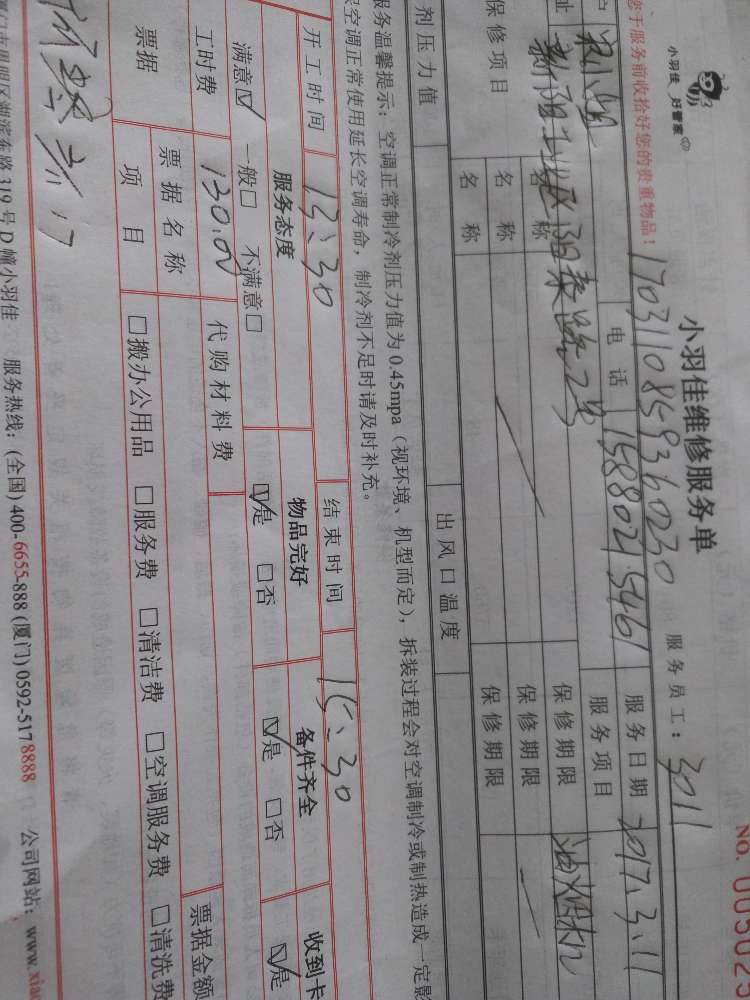 小羽佳 好管家
小羽佳维修服务单
NO. 005025
您于服务前收拾好您的贵重物品！
1703110859360230
服务员工：3011
电话 15880215461 服务日期 2017.3.11
址 新阳工业区阳泰路2号 服务项目 油烟机
保修项目 名称 保修期限
名称 保修期限
名称 保修期限
剂压力值 出风口温度
服务温馨提示：空调正常制冷剂压力值为0.45mpa（视环境、机型而定），拆装过程会对空调制冷或制热造成一定影
保空调正常使用延长空调寿命，制冷剂不足时请及时补充。
开工时间 13:30 结束时间 15:30
服务态度 物品完好 备件齐全 收到卡
满意☑ 一般□ 不满意□ ☑是 □否 ☑是 □否 ☑是
工时费 130.00 代购材料费
票据 票据名称 票据金额
项目 □搬办公用品 □服务费 □清洁费 □空调服务费 □清洗费
厦门市思明区湖滨东路319号D幢小羽佳 服务热线：(全国) 400-6655-888 (厦门) 0592-5178888 公司网站：www.xiao